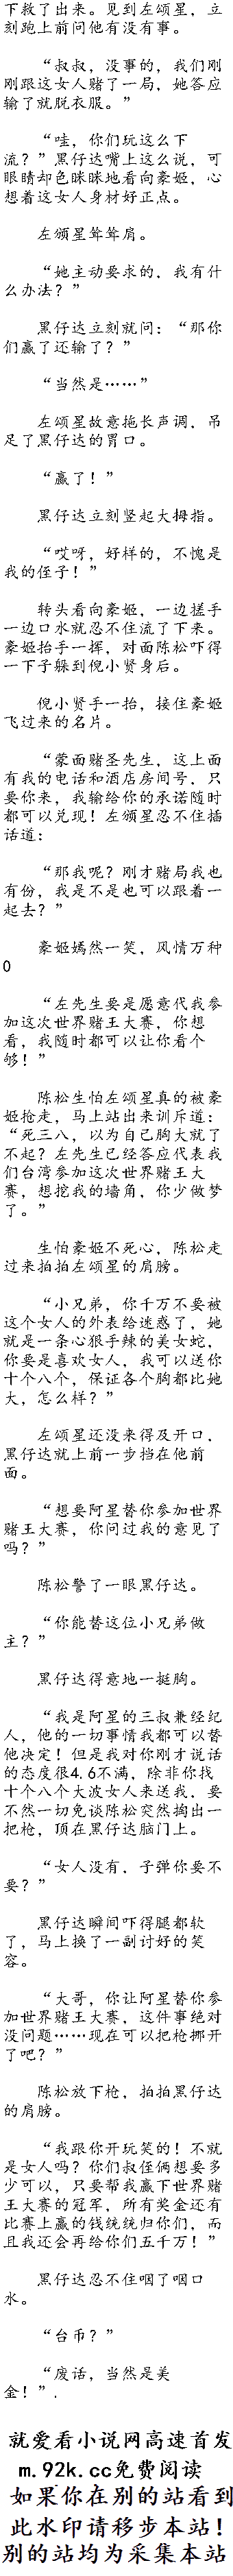 下救了出来。见到左颂星，立
刻跑上前问他有没有事。
“叔叔，没事的，我们刚
刚跟这女人赌了一局，她答应
输了就脱衣服。”
“哇，你们玩这么下
流？”黑仔达嘴上这么说，可
眼睛却色眯眯地看向豪姬，心
想着这女人身材好正点。
左颁星耸耸肩。
“她主动要求的，我有什
么办法？”
黑仔达立刻就问：“那你
们赢了还输了？”
“当然是……”
左颂星故意拖长声调，吊
足了黑仔达的胃口。
“赢了！”
黑仔达立刻竖起大拇指。
“哎呀，好样的，不愧是
我的侄子！”
转头看向豪姬，一边搓手
一边口水就忍不住流了下来。
豪姬抬手一挥，对面陈松吓得
一下子躲到倪小贤身后。
倪小贤手一抬，接住豪姬
飞过来的名片。
“蒙面赌圣先生，这上面
有我的电话和酒店房间号，只
要你来，我输给你的承诺随时
都可以兑现！左颁星忍不住插
话道：
“那我呢？刚才赌局我也
有份，我是不是也可以跟着一
起去？”
豪姬嫣然一笑，风情万种
0
“左先生要是愿意代我参
加这次世界赌王大赛，你想
看，我随时都可以让你看个
够！”
陈松生怕左颂星真的被豪
姬抢走，马上站出来训斥道：
“死三八，以为自己胸大就了
不起？左先生已经答应代表我
们台湾参加这次世界赌王大
赛，想挖我的墙角，你少做梦
了。”
生怕豪姬不死心，陈松走
过来拍拍左颂星的肩膀。
“小兄弟，你千万不要被
这个女人的外表给迷惑了，她
就是一条心狠手辣的美女蛇，
你要是喜欢女人，我可以送你
十个八个，保证各个胸都比她
大，怎么样？”
左颂星还没来得及开口，
黑仔达就上前一步挡在他前
面。
“想要阿星替你参加世界
赌王大赛，你问过我的意见了
吗？”
陈松警了一眼黑仔达。
“你能替这位小兄弟做
主？”
黑仔达得意地一挺胸。
“我是阿星的三叔兼经纪
人，他的一切事情我都可以替
他决定！但是我对你刚才说话
的态度很4.6不满，除非你找
十个八个大波女人来送我，要
不然一切免谈陈松突然掏出一
把枪，顶在黑仔达脑门上。
“女人没有，子弹你要不
要？”
黑仔达瞬间吓得腿都软
了，马上换了一副讨好的笑
容。
“大哥，你让阿星替你参
加世界赌王大赛，这件事绝对
没问题……现在可以把枪挪开
了吧？”
陈松放下枪，拍拍黑仔达
的肩膀。
“我跟你开玩笑的！不就
是女人吗？你们叔侄俩想要多
少可以，只要帮我赢下世界赌
王大赛的冠军，所有奖金还有
比赛上赢的钱统统归你们，而
且我还会再给你们五千万！”
黑仔达忍不住咽了咽口
水。
“台币？”
“废话，当然是美
金！”.
就爱看小说网高速首发
m.92k.cc免费阅读
如果你在别的站看到
此水印请移步本站！
别的站均为采集本站